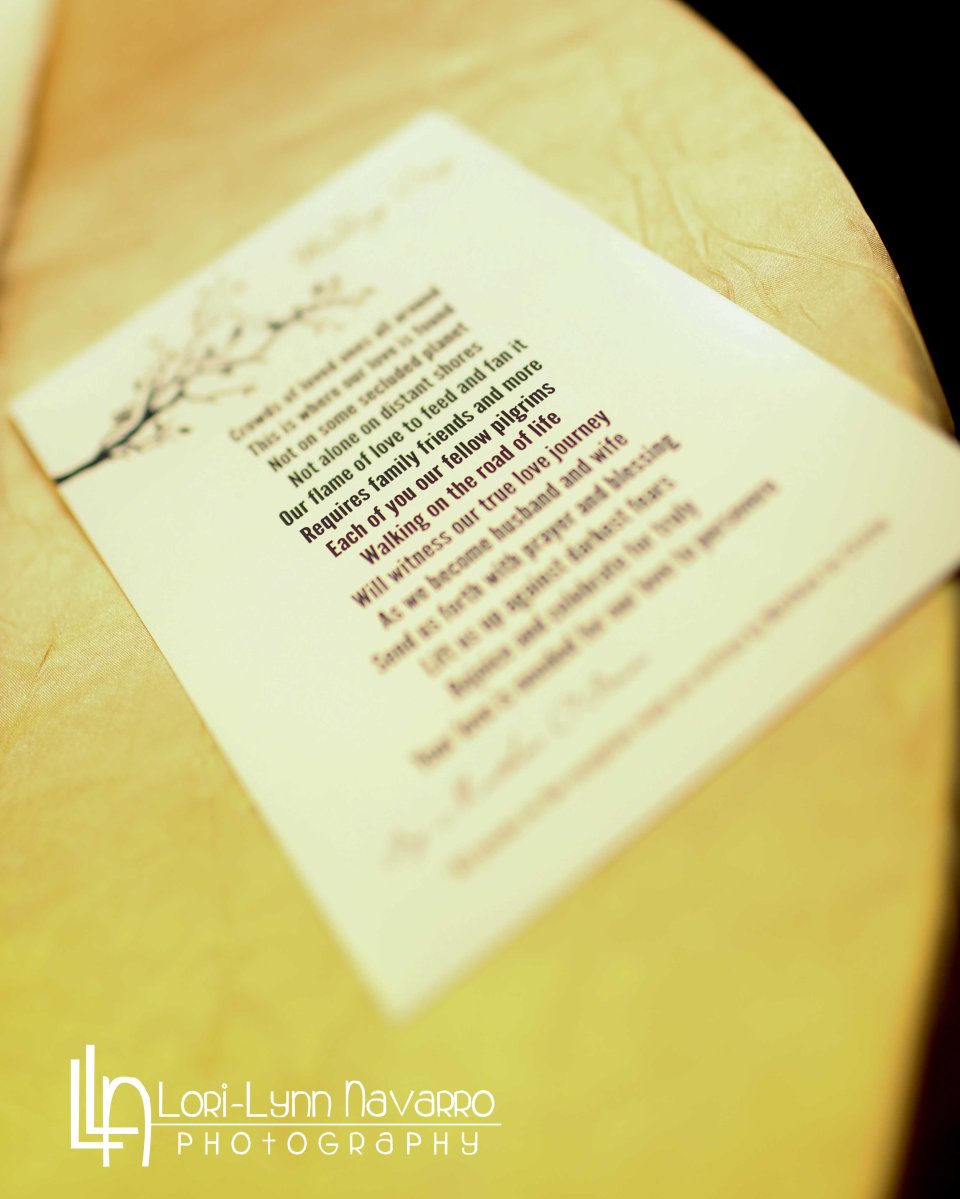 Crowds of loved ones all around
This is where our love is found
Not on some secluded planet
Not alone on distant shores
Our flame of love to feed and fan it
Requires family friends and more
Each of you our fellow pilgrims
Walking on the road of life
Will witness our true love journey
As we become husband and wife
Send us forth with prayer and blessing
Lift us up against darkest fears
Rejoice and celebrate for truly
Your love is needed for our love to persevere
By
LLN Lori-Lynn Navarro
PHOTOGRAPHY